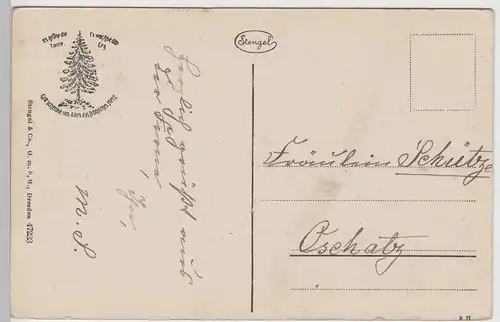 Es grüne die Tanne,
Es wachse das Erz,
Gott schenke uns Allen ein fröhliches Herz.
Stengel
Herzlich grüßt aus
der Ferne
Ihr
M. S.
Fräulein Schütze
Oschatz
Stengel & Co., G. m. b. H., Dresden 47233